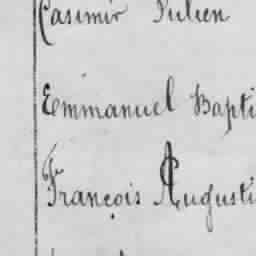 Casimir Julien
Emmanuel Bapti
François Augusti